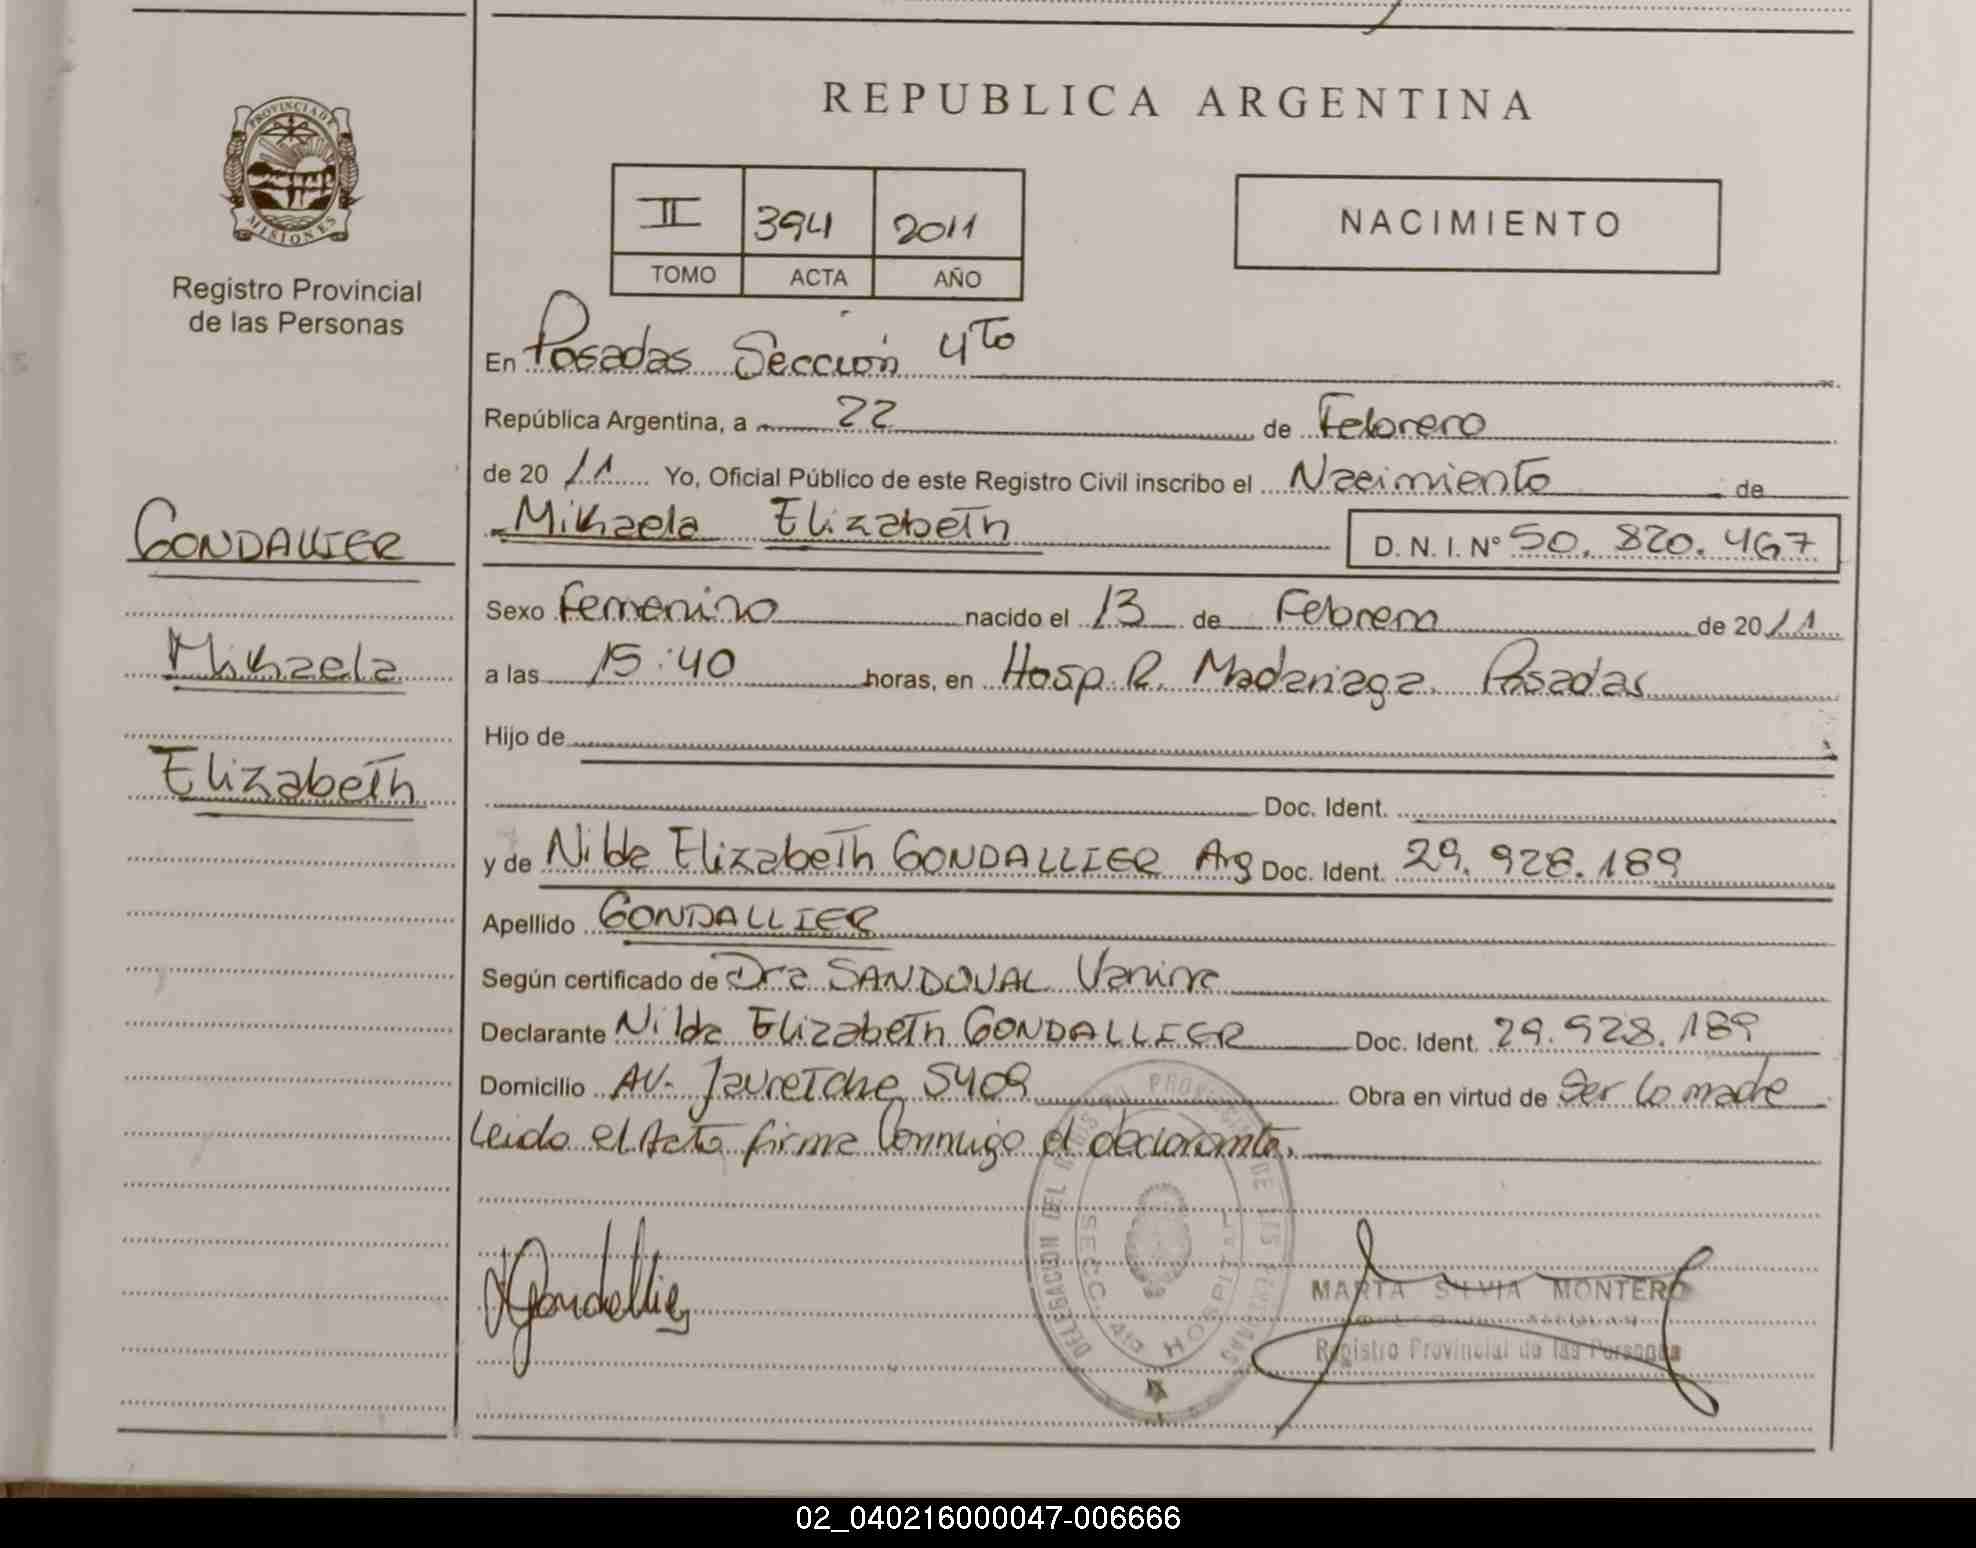 REPUBLICA ARGENTINA
PROVINCIA DE
MISIONES
Registro Provincial
de las Personas
II 394 2011
TOMO ACTA AÑO
NACIMIENTO
GONDALLIER
Mikaela
Elizabeth
En Posadas Sección 4to
República Argentina, a 22 de Febrero
de 20 11 Yo, Oficial Público de este Registro Civil inscribo el Nacimiento de
Mikaela Elizabeth D. N. I. Nº 50. 820. 467
Sexo Femenino nacido el 13 de Febrero de 20 11
a las 15:40 horas, en Hosp. R. Madariaga. Posadas
Hijo de
Doc. Ident.
y de Nilda Elizabeth GONDALLIER Arg Doc. Ident. 29. 928. 189
Apellido GONDALLIER
Según certificado de Dra SANDOVAL Vanina
Declarante Nilda Elizabeth GONDALLIER Doc. Ident. 29. 928. 189
Domicilio AV. Jauretche 5409 Obra en virtud de Ser la madre
Leido el Acta firma Conmigo el declarante.
DELEGACION DEL REGISTRO PROVINCIAL DE LAS PERSONAS
SECC. 4ta HOSPITAL
Gondallier
MARTA SILVIA MONTERO
Registro Provincial de las Personas
02_040216000047-006666